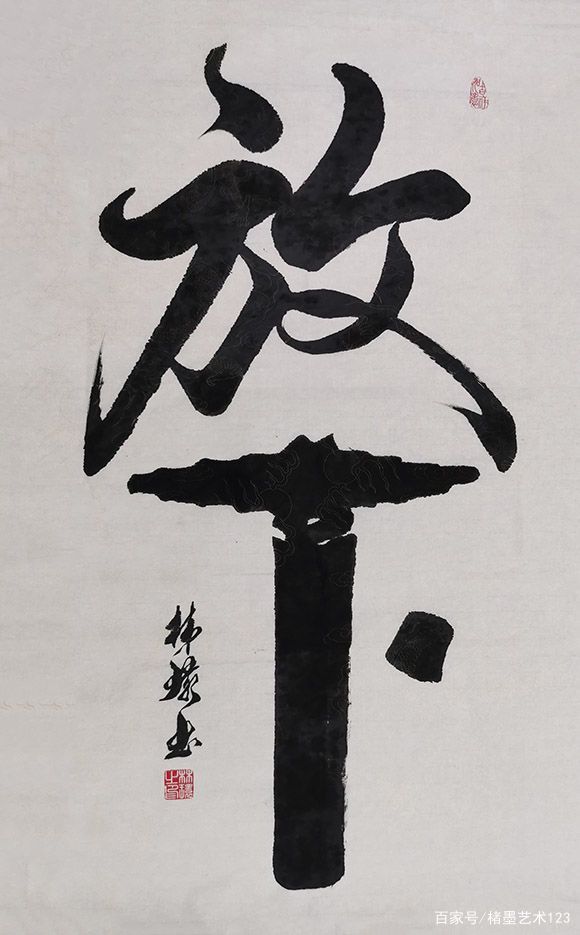 放下
林 书
百家号/楮墨艺术123